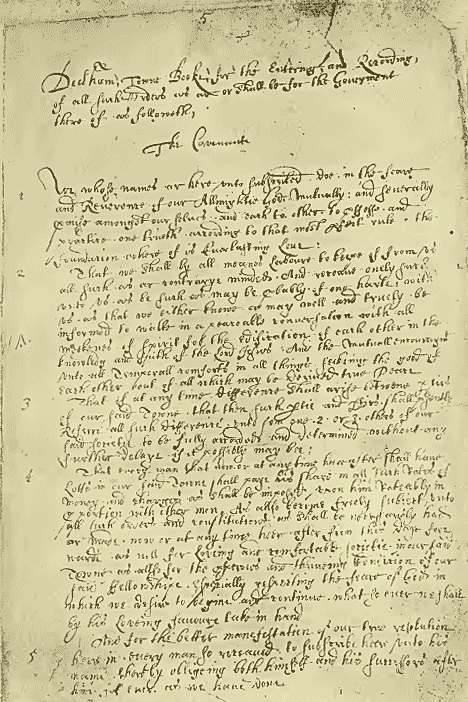 5
Dedham Towne Booke for the Entering and Recording
of all such Orders as ar or shall be for the Government
there of as followeth,
The Covenant
1 We whose names ar here unto subscribed doe in the feare
and Reverence of our Allmightie God Mutually and severally
promise amongst our selves and each to other to professe and
practice one trueth according to that most perfect rule the
foundation where of is Everlasting Love:
2 That we shall by all means Laboure to keepe of from us
all such as ar contrarye minded And receave onely such
unto us as be such as may be probably of one harte with
us as that we either knowe or may well and truely be
informed to walke in a peaceable conversation with all
meekenes of spirit for the edification of each other in the
knowledg and faith of the Lord Jesus And the mutuall encouragmt
unto all Temporall comforts in all things seekeing the good of
each other out of all which may be derived true Peace
3 That if at any time difference shall arise betwene parties
of our said Towne that then such partie and parties shall presently
Referre all such difference unto som one 2 or 3 others of our
said societie to be fully accorded and determined without any
further delaye if it possibly may bee:
4 That every man that now or at any time heere after shall have
Lotts in our said Towne shall paye his share in all such Rates of
money and charges as shall be imposed upon him Rateably in
proportion with other men As allso become freely subject unto
all such orders and constitutions as shall be necessariely had
or made now or at any time heere after from this daye fore
warde as well for Loveing and comfortable societie in our said
Towne as allso for the prosperous and thriveing Condicion of our
said Fellowshipe especially respecting the feare of God in
which we desire to begine and continue what so ever we shall
by his Loveing favoure take in hand
5 And for the better manifestation of our true resolution
heere in every man so receaved to subscribe heere unto his
name thereby obligeing both himself and his successors after
him for ever as we have done